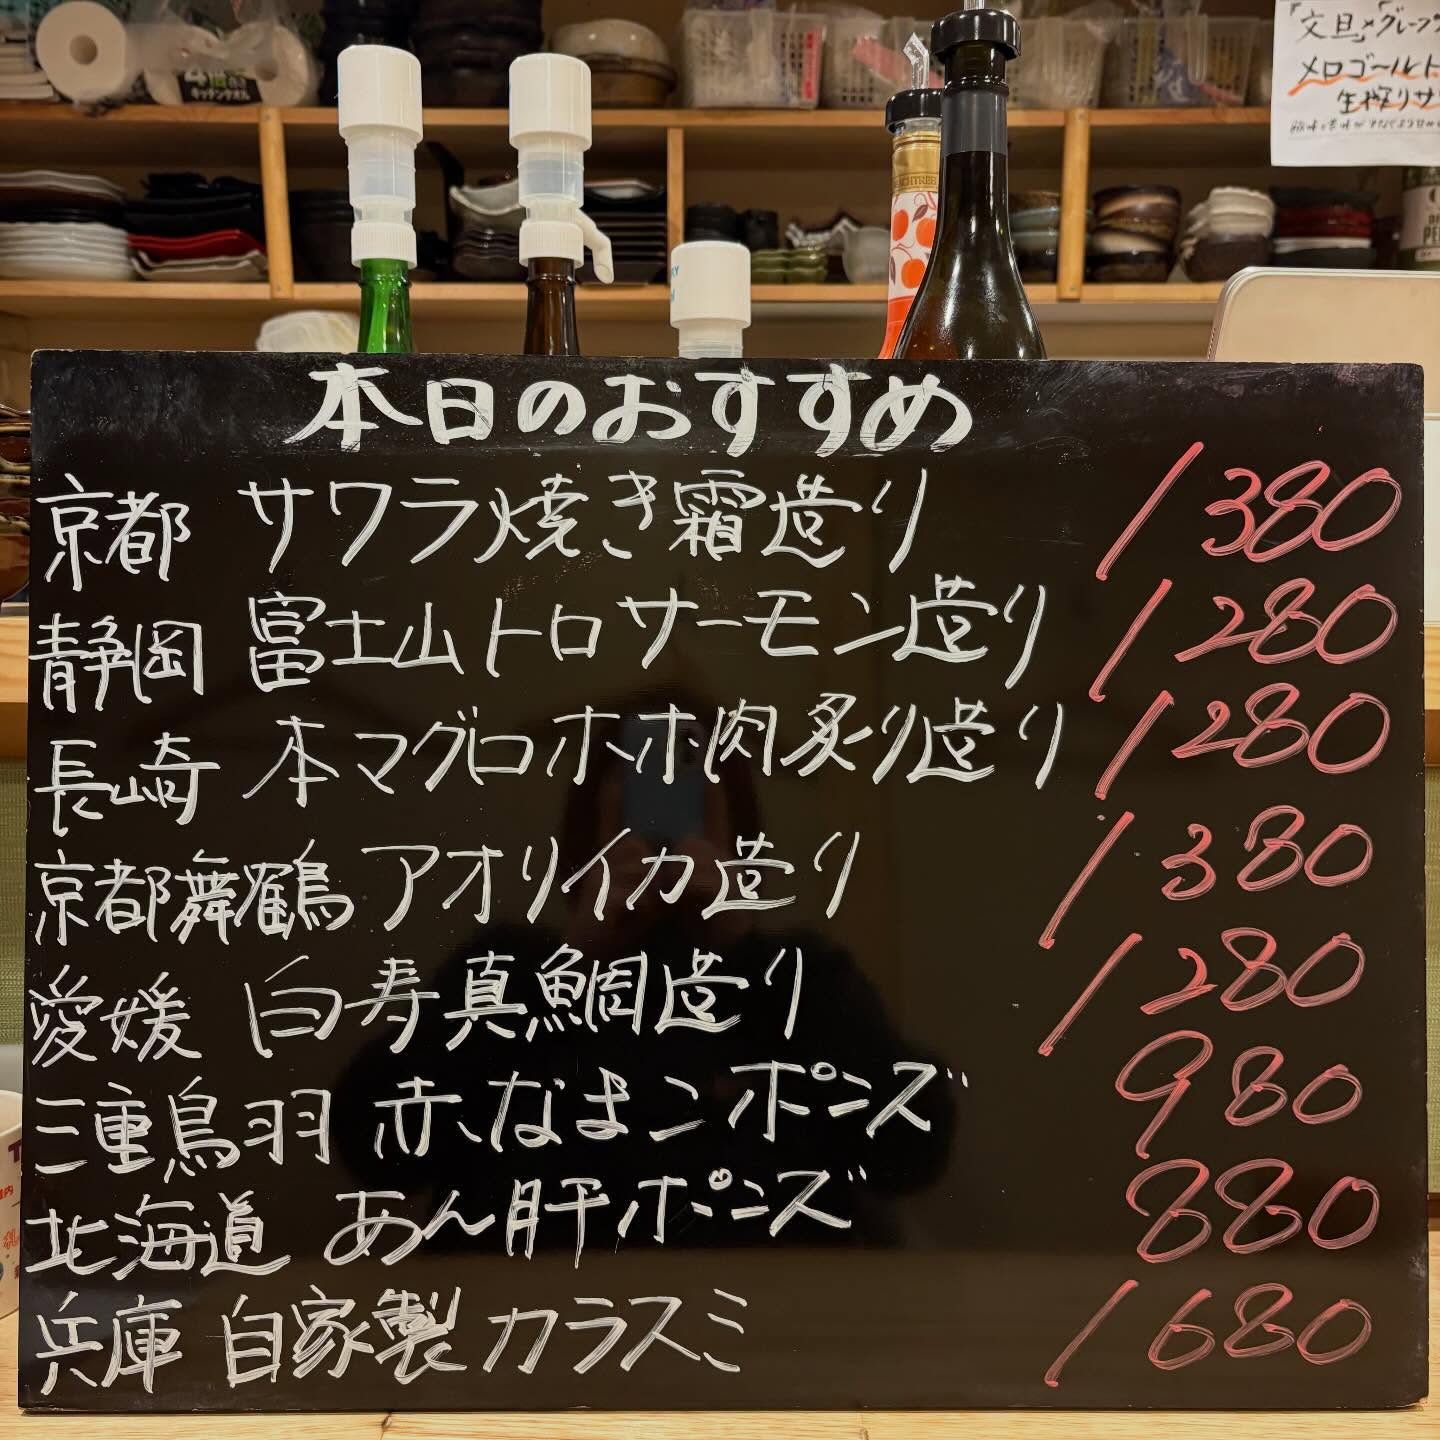 4倍巻き
キッチンタオル
「文旦×グレープ
メロゴールド
生搾りサ
本日のおすすめ
京都 サワラ焼き霜造り 1380
静岡 富士山トロサーモン造り 1280
長崎 本マグロホホ肉炙り造り 1280
京都舞鶴 アオリイカ造り 1380
愛媛 白寿真鯛造り 1280
三重鳥羽 赤なまこポン酢 980
北海道 あん肝ポンズ 880
兵庫 自家製カラスミ 1680